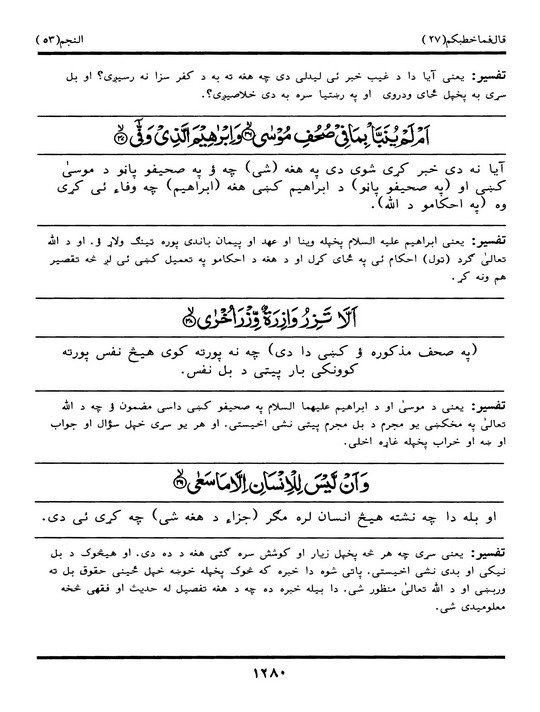 قال فما خطبکم(۲۷) النجم(۵۳)
تفسیر: یعنی آیا دا د غیب خبر ئی لیدلی دی چه هغه ته به د کفر سزا نه رسیږی؟ او بل
سړی به پخپل ځای ودروی او په رښتیا سره به دی خلاصیږی؟.
اَمْ لَمْ يُنَبَّأْ بِمَا فِیْ صُحُفِ مُوْسٰی ﴿۳۶﴾ وَاِبْرٰهِيْمَ الَّذِیْ وَفّٰٓی ﴿۳۷﴾
آیا نه دی خبر کړی شوی دی په هغه (شی) چه ؤ په صحیفو پاڼو د موسیٰ
کښی او (په صحیفو پاڼو) د ابراهیم کښی هغه (ابراهیم) چه وفاء ئی کړی
وه (په احکامو د الله).
تفسیر: یعنی ابراهیم علیه السلام پخپله وینا او عهد او پیمان باندی پوره تینګ ولاړ ؤ. او د الله
تعالیٰ ګرد (ټول) احکام ئی په ځای کړل او د هغه د احکامو په تعمیل کښی ئی لږ څه تقصیر
هم ونه کړ.
اَلَّا تَزِرُ وَازِرَةٌ وِّزْرَ اُخْرٰی ﴿۳۸﴾
(په صحف مذکوره ؤ کښی دا دی) چه نه پورته کوی هیڅ نفس پورته
کوونکی بار پیټی د بل نفس.
تفسیر: یعنی د موسیٰ او د ابراهیم علیهما السلام په صحیفو کښی داسی مضمون ؤ چه د الله
تعالیٰ په مخکښی یو مجرم د بل مجرم پیټی نشی اخیستی. او هر یو سړی خپل سؤال او جواب
او ښه او خراب پخپله غاړه اخلی.
وَاَنْ لَّيْسَ لِلْاِنْسَانِ اِلَّا مَا سَعٰی ﴿۳۹﴾
او بله دا چه نشته هیڅ انسان لره مګر (جزاء د هغه شی) چه کړی ئی دی.
تفسیر: یعنی سړی چه هر څه پخپل زیار او کوشش سره ګټی هغه د ده دی. او هیڅوک د بل
نیکی او بدی نشی اخیستی. پاتی شوه دا خبره که څوک پخپله خوښه خپل ځینی حقوق بل ته
وربښی او د الله تعالیٰ منظور شی. دا بیله خبره ده چه د هغه تفصیل له حدیث او فقهی څخه
معلومیدی شی.
۱۲۸۰